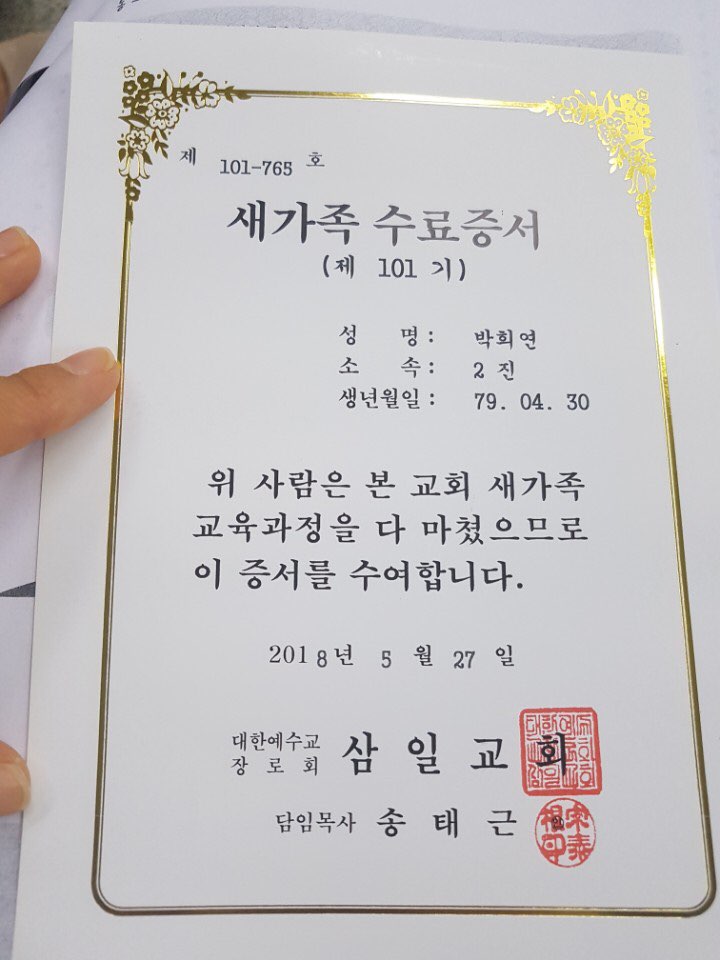 제 101-765 호
새가족 수료증서
(제 101 기)
성 명 : 박희연
소 속 : 2 진
생년월일 : 79. 04. 30
위 사람은 본 교회 새가족
교육과정을 다 마쳤으므로
이 증서를 수여합니다.
2018년 5 월 27 일
대한예수교
장 로 회 삼 일 교 회
담임목사 송 태 근